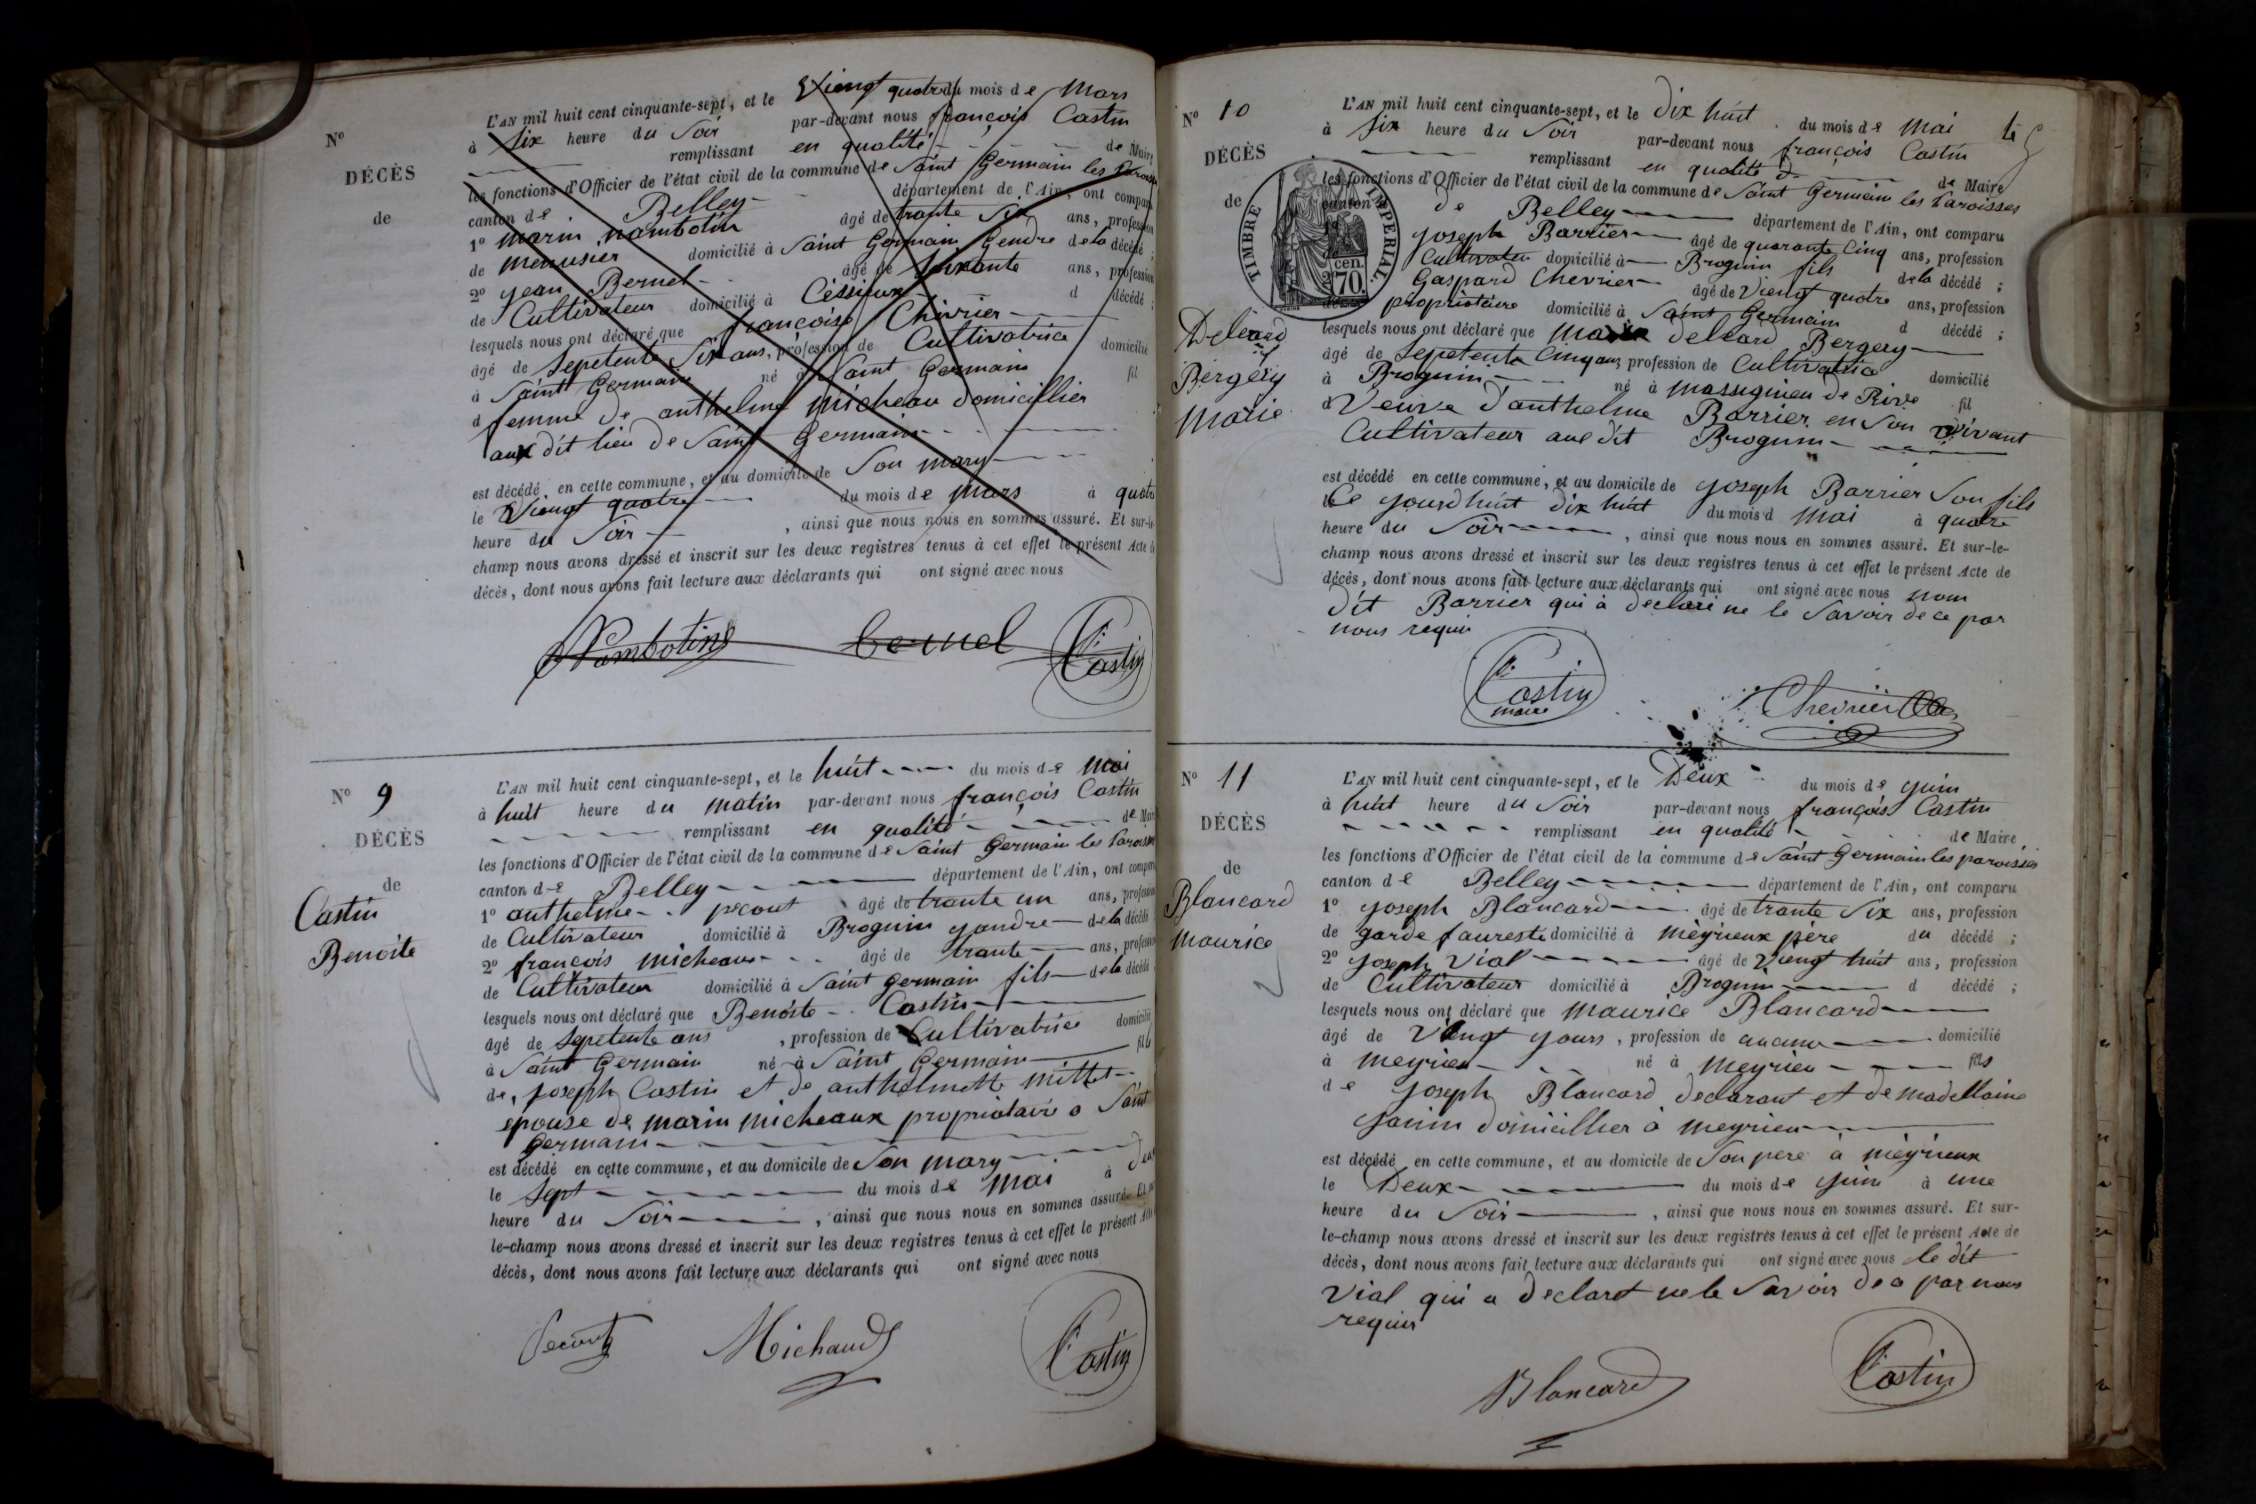 N°
DÉCÈS
de
L'AN mil huit cent cinquante-sept, et le Viengt quatre du mois de Mars
à Six heure du Soir par-devant nous françois Castin
remplissant en qualité de Maire
les fonctions d'Officier de l'état civil de la commune de Saint Germain les Paroisse
canton de Belley département de l'Ain, ont comparu
1° marin nambotin âgé de trante Six ans, profession
de menusier domicilié à Saint Germain Gendre de la décédé ;
2° Jean Bernel âgé de Soixante ans, profession
de Cultivateur domicilié à Céssieux d décédé ;
lesquels nous ont déclaré que françoise Chivrier
âgé de Sepetente Six ans, profession de Cultivatrice domicilié
à Saint Germain né à Saint Germain fil
d femme de anthelme micheau domicillier
aux dit lieu de Saint Germain
est décédé en cette commune, et au domicile de Son mary
le Viengt quatre du mois de Mars à quatre
heure du Soir, ainsi que nous nous en sommes assuré. Et sur-le-
champ nous avons dressé et inscrit sur les deux registres tenus à cet effet le présent Acte de
décès, dont nous avons fait lecture aux déclarants qui ont signé avec nous
Nambotin Bernel Castin
N° 9
DÉCÈS
de
Castin
Benoite
L'AN mil huit cent cinquante-sept, et le huit du mois de Mai
à huit heure du matin par-devant nous françois Castin
remplissant en qualité de Maire
les fonctions d'Officier de l'état civil de la commune de Saint Germain les Paroisses
canton de Belley département de l'Ain, ont comparu
1° anthelme pecout âgé de trante un ans, profession
de Cultivateur domicilié à Brognin gandre de la décédé
2° françois micheaux âgé de trante ans, profession
de Cultivateur domicilié à Saint germain fils de la décédé
lesquels nous ont déclaré que Benoite Castin
âgé de Sepetente ans, profession de Cultivatrice domicilié
à Saint Germain né à Saint Germain fille
de Joseph Castin et de anthelmette mittet
epouse de marin micheaux propriataire a Saint
Germain
est décédé en cette commune, et au domicile de Son mary
le Sept du mois de Mai à Deux
heure du Soir, ainsi que nous nous en sommes assuré. Et sur-
le-champ nous avons dressé et inscrit sur les deux registres tenus à cet effet le présent Acte
décès, dont nous avons fait lecture aux déclarants qui ont signé avec nous
Pecout Michaud Castin
N° 10
DÉCÈS
de
TIMBRE IMPERIAL
cen. 70.
Deleard
Bergery
Marie
L'AN mil huit cent cinquante-sept, et le Dix huit du mois de Mai
à Six heure du Soir par-devant nous françois Castin
remplissant en qualité d de Maire
les fonctions d'Officier de l'état civil de la commune de Saint Germain les Paroisses
canton de Belley département de l'Ain, ont comparu
Joseph Barrier âgé de quarante Cinq ans, profession
Cultivateur domicilié à Brognin fils de la décédé ;
Gaspard Chevrier âgé de Viengt quatre ans, profession
propriétaire domicilié à Saint Germain d décédé ;
lesquels nous ont déclaré que Marie deleard Bergery
âgé de Sepetente Cinq ans, profession de Cultivatrice domicilié
à Brognin né à massignieu de Rive fil
d Veuve d'anthelme Barrier en Son vivant
Cultivateur aux dit Brognin
est décédé en cette commune, et au domicile de Joseph Barrier Son fils
le Ce jourdhuit Dix huit du mois d Mai à quatre
heure du Soir, ainsi que nous nous en sommes assuré. Et sur-le-
champ nous avons dressé et inscrit sur les deux registres tenus à cet effet le présent Acte de
décès, dont nous avons fait lecture aux déclarants qui ont signé avec nous nom
dit Barrier qui à déclaré ne le Savoir de ce par
nous requi
Castin maire Chevrier
N° 11
DÉCÈS
de
Blancard
Maurice
L'AN mil huit cent cinquante-sept, et le Deux du mois de Juin
à huit heure du Soir par-devant nous françois Castin
remplissant en qualité de Maire
les fonctions d'Officier de l'état civil de la commune de Saint Germain les paroisses
canton de Belley département de l'Ain, ont comparu
1° Joseph Blancard âgé de trante Six ans, profession
de garde faureste domicilié à meyrieux père du décédé ;
2° Joseph Vial âgé de Viengt huit ans, profession
de Cultivateur domicilié à Brognin d décédé ;
lesquels nous ont déclaré que Maurice Blancard
âgé de Viengt Jours, profession de aucune domicilié
à meyrieu né à Meyrieu fils
de Joseph Blancard declarant et de madellaine
Janin domicillier à meyrieu
est décédé en cette commune, et au domicile de Son pere à meyrieux
le Deux du mois de Juin à une
heure du Soir, ainsi que nous nous en sommes assuré. Et sur-
le-champ nous avons dressé et inscrit sur les deux registres tenus à cet effet le présent Acte de
décès, dont nous avons fait lecture aux déclarants qui ont signé avec nous le dit
Vial qui a declaret ne le Savoir de a par nous
requis
Blancard Castin